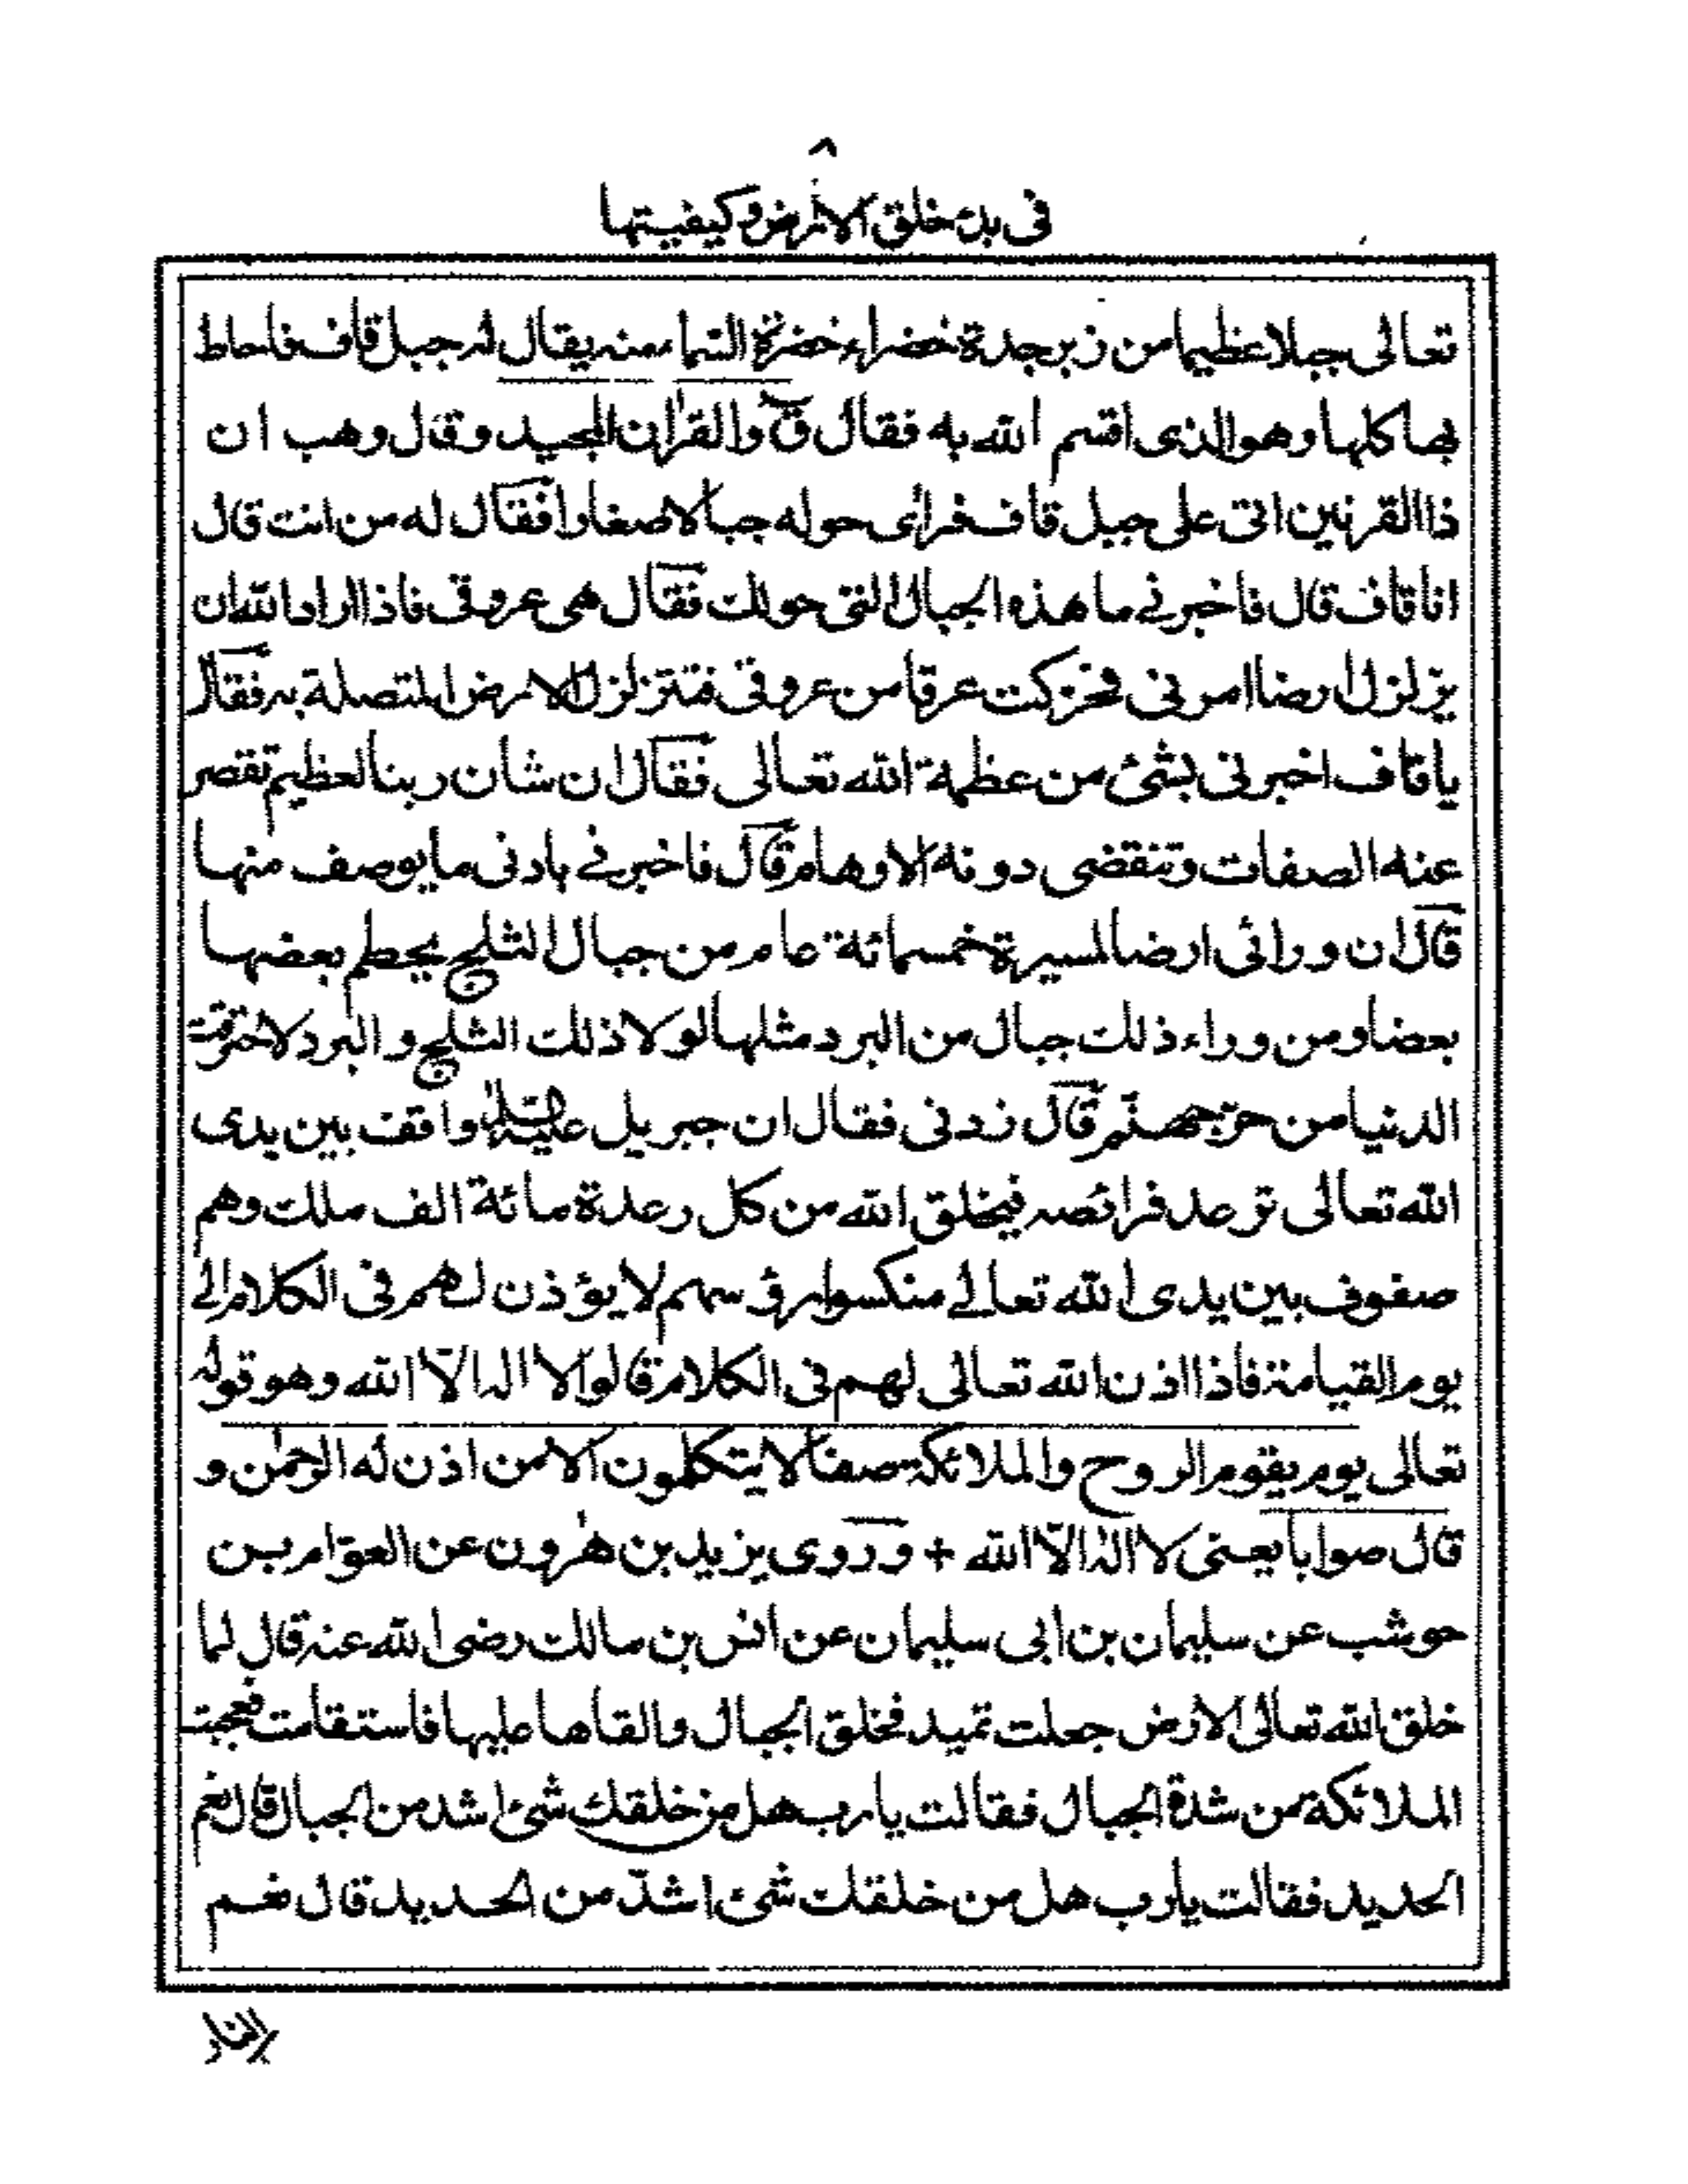 ٨
فى بدء خلق الارض وكيفيتها
تعالى جبلا عظيما من زبرجدة خضراء خضرة السماء منه يقال له جبل قاف فاحاط
بها كلها وهو الذى اقسم الله به فقال ق والقرٰان المجيد وقال وهب ان
ذا القرنين اتى على جبل قاف فرائى حوله جبالا صغارا فقال له من انت قال
انا قاف قال فاخبرنے ما هذه الجبال التى حولك فقال هى عروقى فاذا اراد الله ان
يزلزل ارضا امرنى فحركت عرقا من عروقى فتتزلزل الارض المتصلة به فقال
يا قاف اخبرنى بشئ من عظمة الله تعالى فقال ان شان ربنا لعظيم تقصر
عنه الصفات وتنقضى دونه الاوهام قال فاخبرنے بادنى ما يوصف منها
قال ان ورائى ارضا لمسيرة خمسمائة عام من جبال الثلج يحطم بعضها
بعضا ومن وراء ذلك جبال من البرد مثلها لو لا ذلك الثلج والبرد لاحترقت
الدنيا من حرّ جهنّم قال زدنى فقال ان جبريل عليه السلام واقف بين يدى
الله تعالى ترعد فرائصه فيخلق الله من كل رعدة مائة الف ملك وهم
صفوف بين يدى الله تعالے منكسوا رؤسهم لا يؤذن لهم فى الكلام الے
يوم القيامة فاذا اذن الله تعالى لهم فى الكلام قالوا لا اله الّا الله وهو قوله
تعالى يوم يقوم الروح والملائكة صفا لا يتكلمون الا من اذن له الرحمٰن و
قال صوابا يعنى لا اله الّا الله + وروى يزيد بن هٰرون عن العوّام بن
حوشب عن سليمان بن ابى سليمان عن انس بن مالك رضى الله عنه قال لما
خلق الله تعالى الارض جعلت تميد فخلق الجبال والقاها عليها فاستقامت فعجبت
الملائكة من شدة الجبال فقالت يا رب هل من خلقك شئ اشد من الجبال قال نعم
الحديد فقالت يا رب هل من خلقك شئ اشدّ من الحديد قال نعم
النار